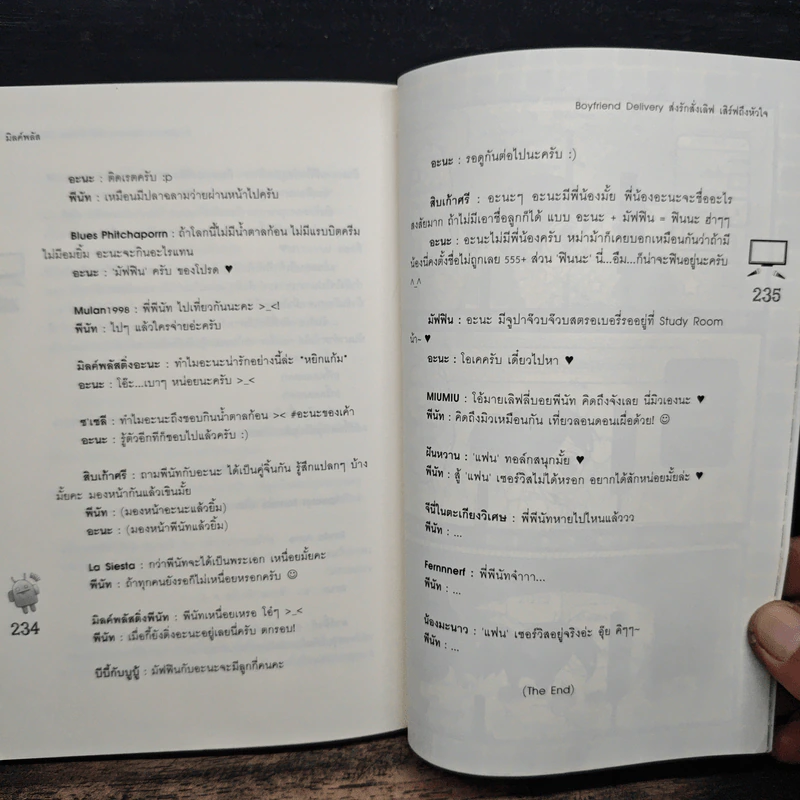 มิลค์พลัส
อะนะ : ติดเรตครับ :p
พีนัท : เหมือนมีปลาฉลามว่ายผ่านหน้าไปครับ
Blues Phitchaporrn : ถ้าโลกนี้ไม่มีน้ำตาลก้อน ไม่มีแรบบิตครีม
ไม่มีอมยิ้ม อะนะจะกินอะไรแทน
อะนะ : 'มัฟฟิน' ครับ ของโปรด ♥
Mulan1998 : พี่พีนัท ไปเที่ยวกันนะคะ >_<!
พีนัท : ไปๆ แล้วใครจ่ายอ่ะครับ
มิลค์พลัสติ่งอะนะ : ทำไมอะนะน่ารักอย่างนี้ล่ะ *หยิกแก้ม*
อะนะ : โอ๊ะ...เบาๆ หน่อยนะครับ >_<
ช'เชลี : ทำไมอะนะถึงชอบกินน้ำตาลก้อน >< #อะนะของเค้า
อะนะ : รู้ตัวอีกทีก็ชอบไปแล้วครับ :)
สิบเก้าศรี : ถามพีนัทกับอะนะ ได้เป็นคู่จิ้นกัน รู้สึกแปลกๆ บ้าง
มั้ยคะ มองหน้ากันแล้วเขินมั้ย
พีนัท : (มองหน้าอะนะแล้วยิ้ม)
อะนะ : (มองหน้าพีนัทแล้วยิ้ม)
La Siesta : กว่าพีนัทจะได้เป็นพระเอก เหนื่อยมั้ยคะ
พีนัท : ถ้าทุกคนยังรอก็ไม่เหนื่อยหรอกครับ ☺
มิลค์พลัสติ่งพีนัท : พีนัทเหนื่อยเหรอ โอ๋ๆ >_<
พีนัท : เมื่อกี้ยังติ่งอะนะอยู่เลยนี่ครับ ตกรอบ!
บีบี้กับบูบู้ : มัฟฟินกับอะนะจะมีลูกกี่คนคะ
234
Boyfriend Delivery ส่งรักสั่งเลิฟ เสิร์ฟถึงหัวใจ
อะนะ : รอดูกันต่อไปนะครับ :)
สิบเก้าศรี : อะนะๆ อะนะมีพี่น้องมั้ย พี่น้องอะนะจะชื่ออะไร
สงสัยมาก ถ้าไม่มีเอาชื่อลูกก็ได้ แบบ อะนะ + มัฟฟิน = ฟินนะ ฮ่าๆๆ
อะนะ : อะนะไม่มีพี่น้องครับ หม่าม้าก็เคยบอกเหมือนกันว่าถ้ามี
น้องนี่คงตั้งชื่อไม่ถูกเลย 555+ ส่วน 'ฟินนะ' นี่...อืม...ก็น่าจะฟินอยู่นะครับ
^_^
มัฟฟิน : อะนะ มีจูปาจ๊วบจ๊วบสตรอเบอรี่รออยู่ที่ Study Room
น้า~ ♥
อะนะ : โอเคครับ เดี๋ยวไปหา ♥
MIUMIU : โอ้มายเลิฟลี่บอยพีนัท คิดถึงจังเลย นี่มิวเองนะ ♥
พีนัท : คิดถึงมิวเหมือนกัน เที่ยวลอนดอนเผื่อด้วย! ☺
ฝันหวาน : 'แฟน' ทอล์กสนุกมั้ย ♥
พีนัท : สู้ 'แฟน' เซอร์วิสไม่ได้หรอก อยากได้สักหน่อยมั้ยล่ะ ♥
จีนี่ในตะเกียงวิเศษ : พี่พีนัทหายไปไหนแล้ววว
พีนัท : ...
Fernnnerf : พี่พีนัทจ๋าาา...
พีนัท : ...
น้องมะนาว : 'แฟน' เซอร์วิสอยู่จริงอ่ะ อุ๊ย คิๆๆ~
พีนัท : ...
(The End)
235